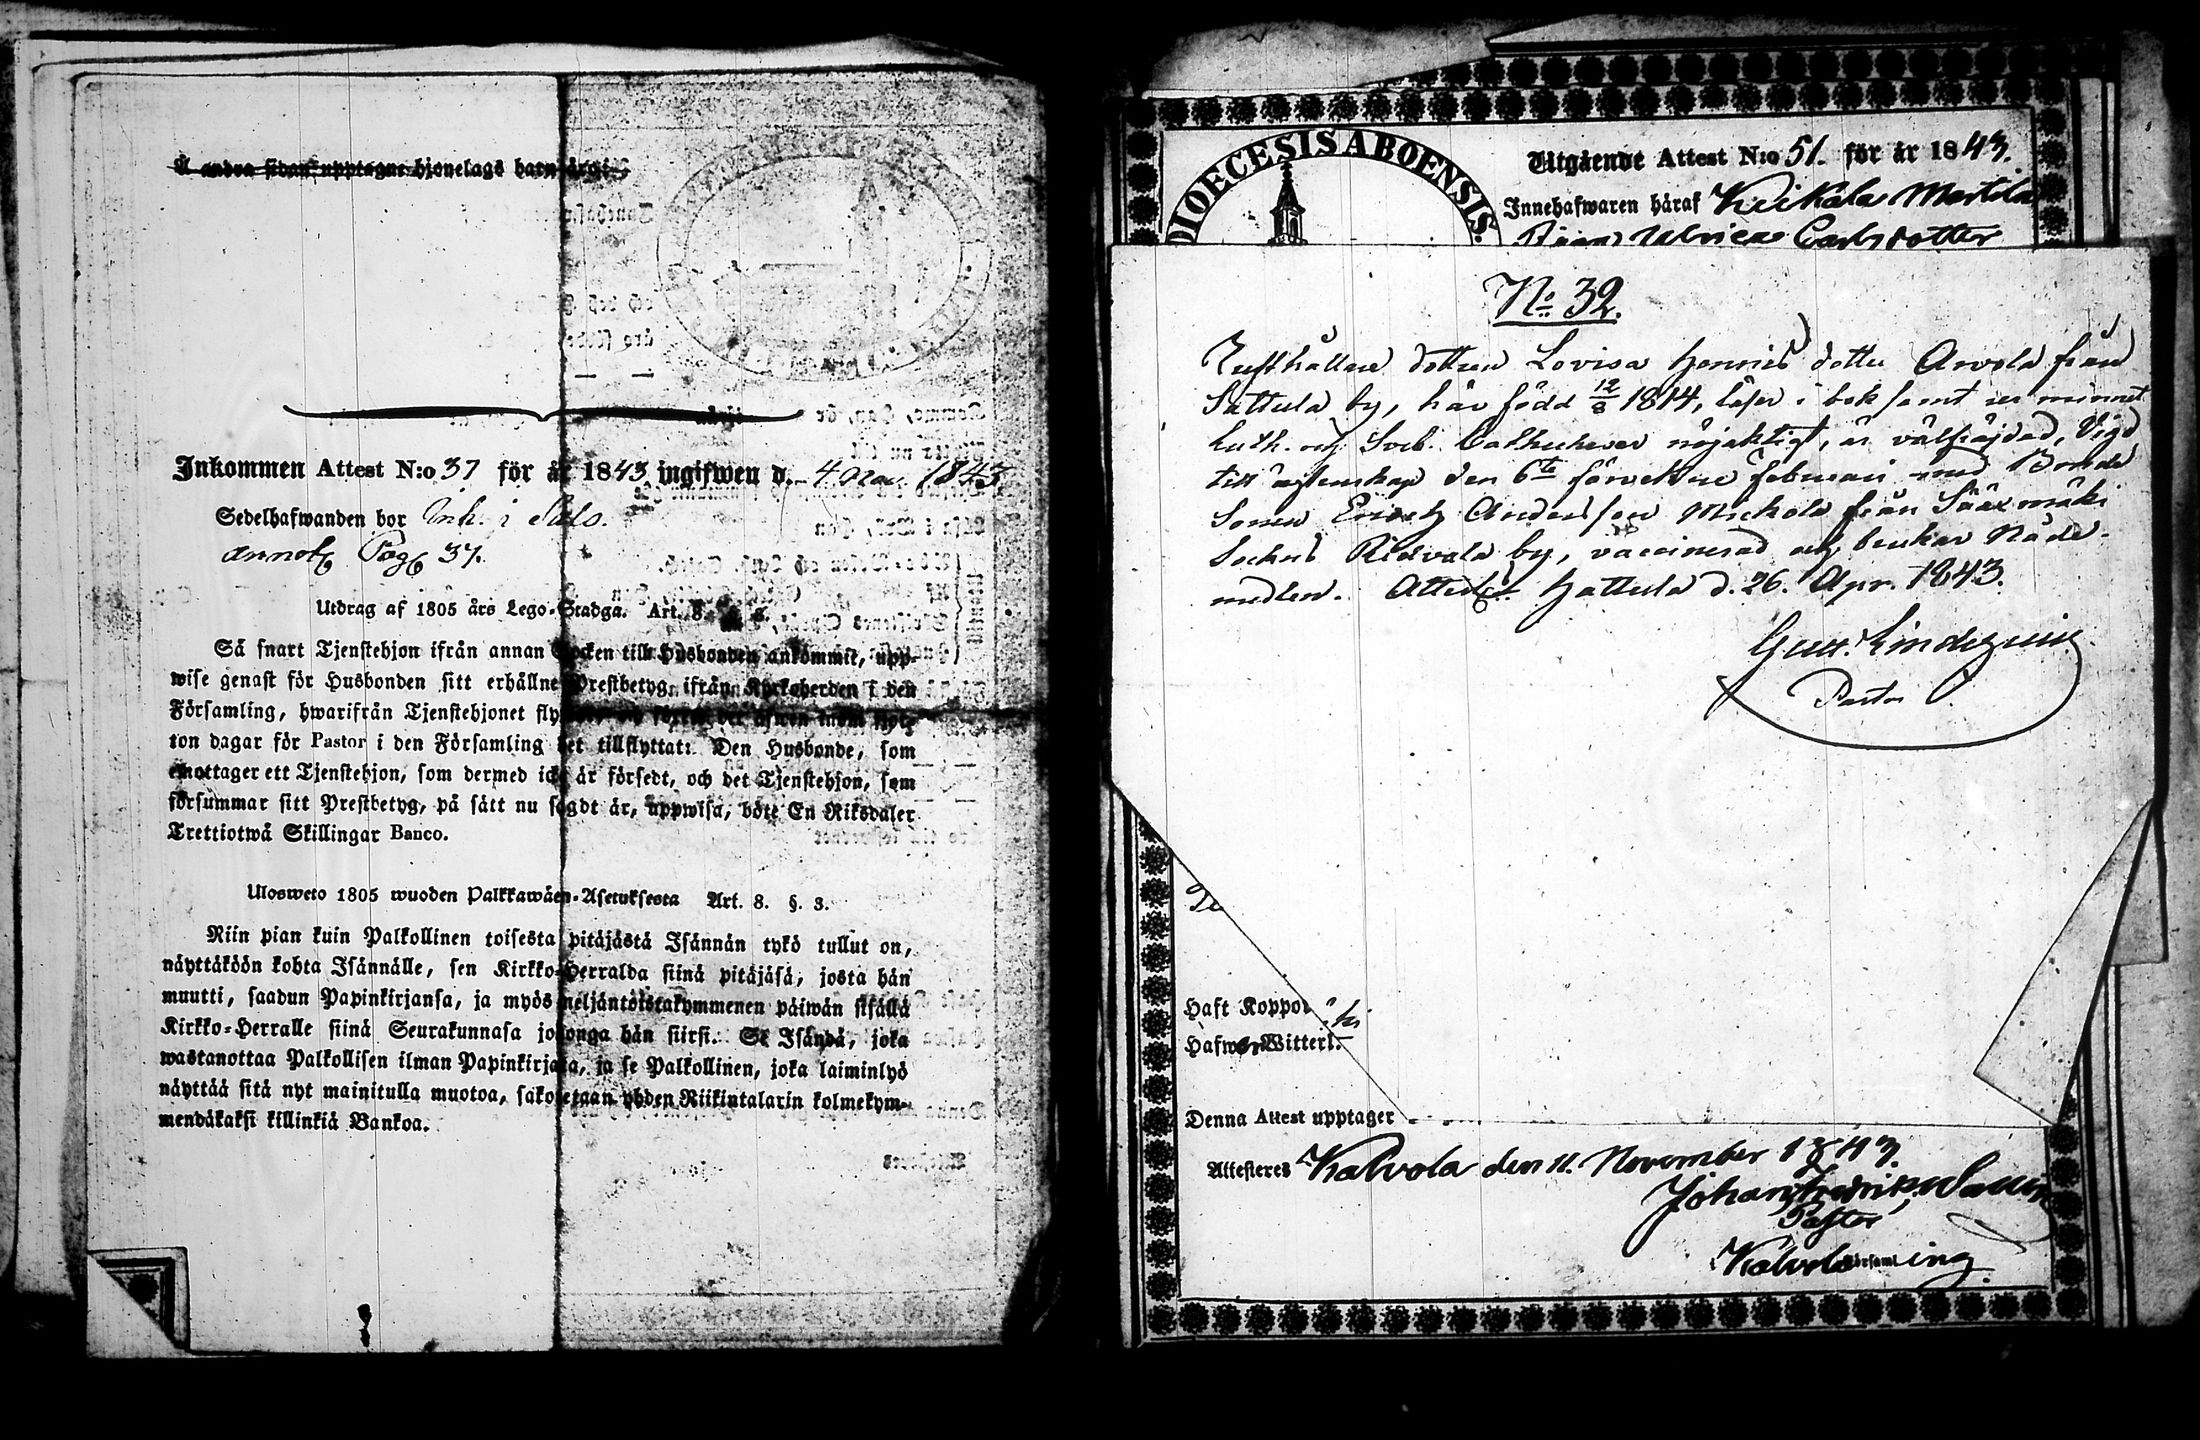 Å andra sidan upptagne hjonelags barn äro:
Inkommen Attest N:o 37 för år 1843 ingifwen d. 4 Nov. 1843
Sedelhafwanden bor Inh. i Salo.
annot. Pag. 37.
Utdrag af 1805 års Lego-Stadga. Art. 8. §. 3.
Så snart Tjenstehjon ifrån annan Socken till Husbonden ankommit, upp-
wise genast för Husbonden sitt erhållne Prestbetyg ifrån Kyrkoherden i den
Församling, hwarifrån Tjenstehjonet flyttat
ton dagar för Pastor i den Församling det tillflyttat: Den Husbonde, som
emottager ett Tjenstehjon, som dermed icke är försedt, och det Tjenstehjon, som
försummar sitt Prestbetyg, på sätt nu sagdt är, uppwisa, böte En Riksdaler
Trettiotwå Skillingar Banco.
Ulosweto 1805 wuoden Palkkawäen-Asetuksesta Art. 8. §. 3.
Niin pian kuin Palkollinen toisesta pitäjästä Isännän tykö tullut on,
näyttäköön kohta Isännälle, sen Kirkko-Herralda siinä pitäjäsä, josta hän
muutti, saadun Papinkirjansa, ja myös neljäntoistakymmenen päiwän sisällä
Kirkko-Herralle siinä Seurakunnasa jo honga hän siirsi. Se Isändä, joka
wastanottaa Palkollisen ilman Papinkirjata, ja se Palkollinen, joka laiminlyö
näyttää sitä nyt mainitulla muotoa, sakotetaan yhden Riikintalarin kolmekym-
mendäkaksi killinkiä Bankoa.
DIOECESIS ABOENSIS.
Utgående Attest N:o 51. för år 1843.
Innehafwaren häraf Keikala Martila
Ulrica Carlsdotter
No 32.
Rusthållare dottren Lovisa Henrics dotter Arvola från
Sattula by, här född 12/8 1814, läser i bok samt ur minnet
Luth. och Sveb. Catecheser nöjaktigt, är välfräjdad, Vigd
till äktenskap den 6te förvekne Februari med Bonde
Sonen Erich Andersson Mickola från Sääxmäki
Sockns Ridvala by, vaccinerad och brukar Nåde-
medlen. Attest. Hattula d. 26. Apr. 1843.
Gust. Lindegrein
Pastor
Haft Koppor
Hafwer Witterl.
Denna Attest upptager
Attesteres Kalvola den 11. November 1843.
Johan Fredrik
Pastor
Kalvola Församling